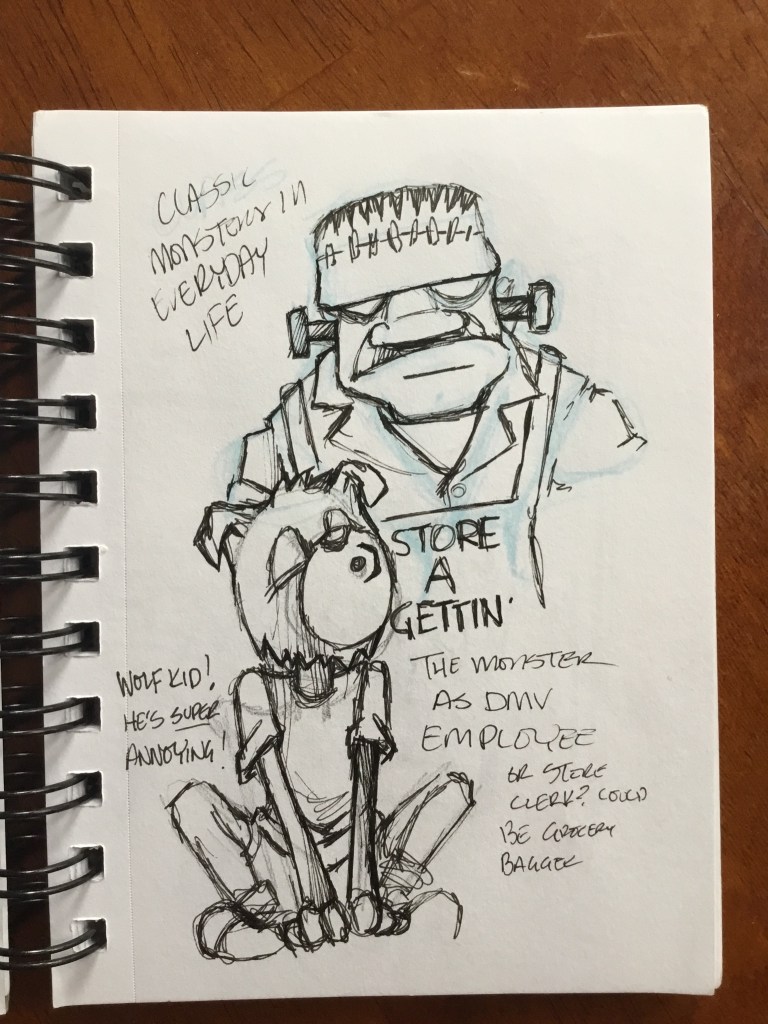 CLASSIC
MONSTERS IN
EVERYDAY
LIFE
STORE
A
GETTIN'
WOLF KID!
HE'S SUPER
ANNOYING!
THE MONSTER
AS DMV
EMPLOYEE
OR STORE
CLERK? COULD
BE GROCERY
BAGGER